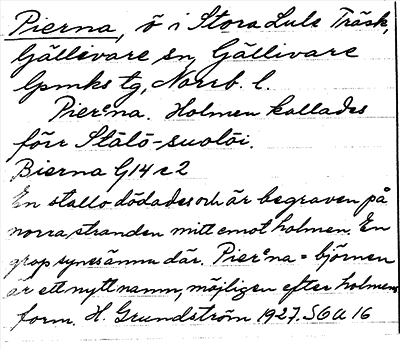 Pierna, ö i Stora Lule Träsk,
Gällivare sn, Gällivare
lpmks tg, Norrb. l.
Pierᵉna. Holmen kallades
förr Stālō-suolōi.
Bierna G14 c2
En stallo dödades och är begraven på
norra stranden mitt emot holmen. En
grop synes ännu där. Pierᵉna = björnen
är ett nytt namn, möjligen efter holmens
form. H. Grundström 1927. SOU 16